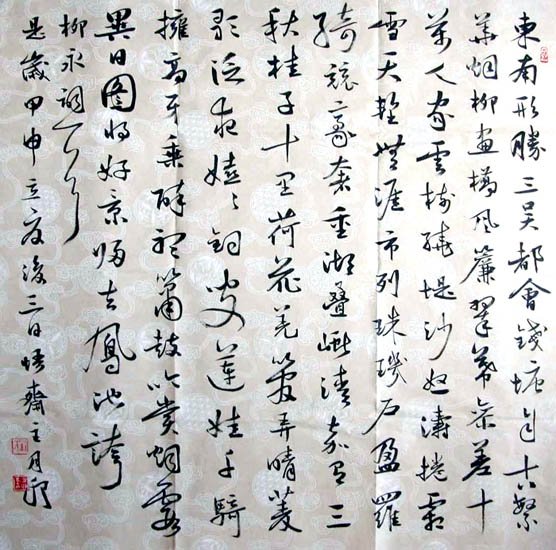 東南形勝三吳都會錢塘自古繁
華烟柳畫橋風簾翠幕參差十
萬人家雲樹繞堤沙怒濤捲霜
雪天塹無涯市列珠璣戶盈羅
綺競豪奢重湖疊巘清嘉有三
秋桂子十里荷花羌管弄晴菱
歌泛夜嬉々釣叟蓮娃千騎
擁高牙乘醉聽簫鼓吟賞烟霞
異日圖將好景歸去鳳池誇
柳永詞一首
是歲甲申立夏後三日悟齋主